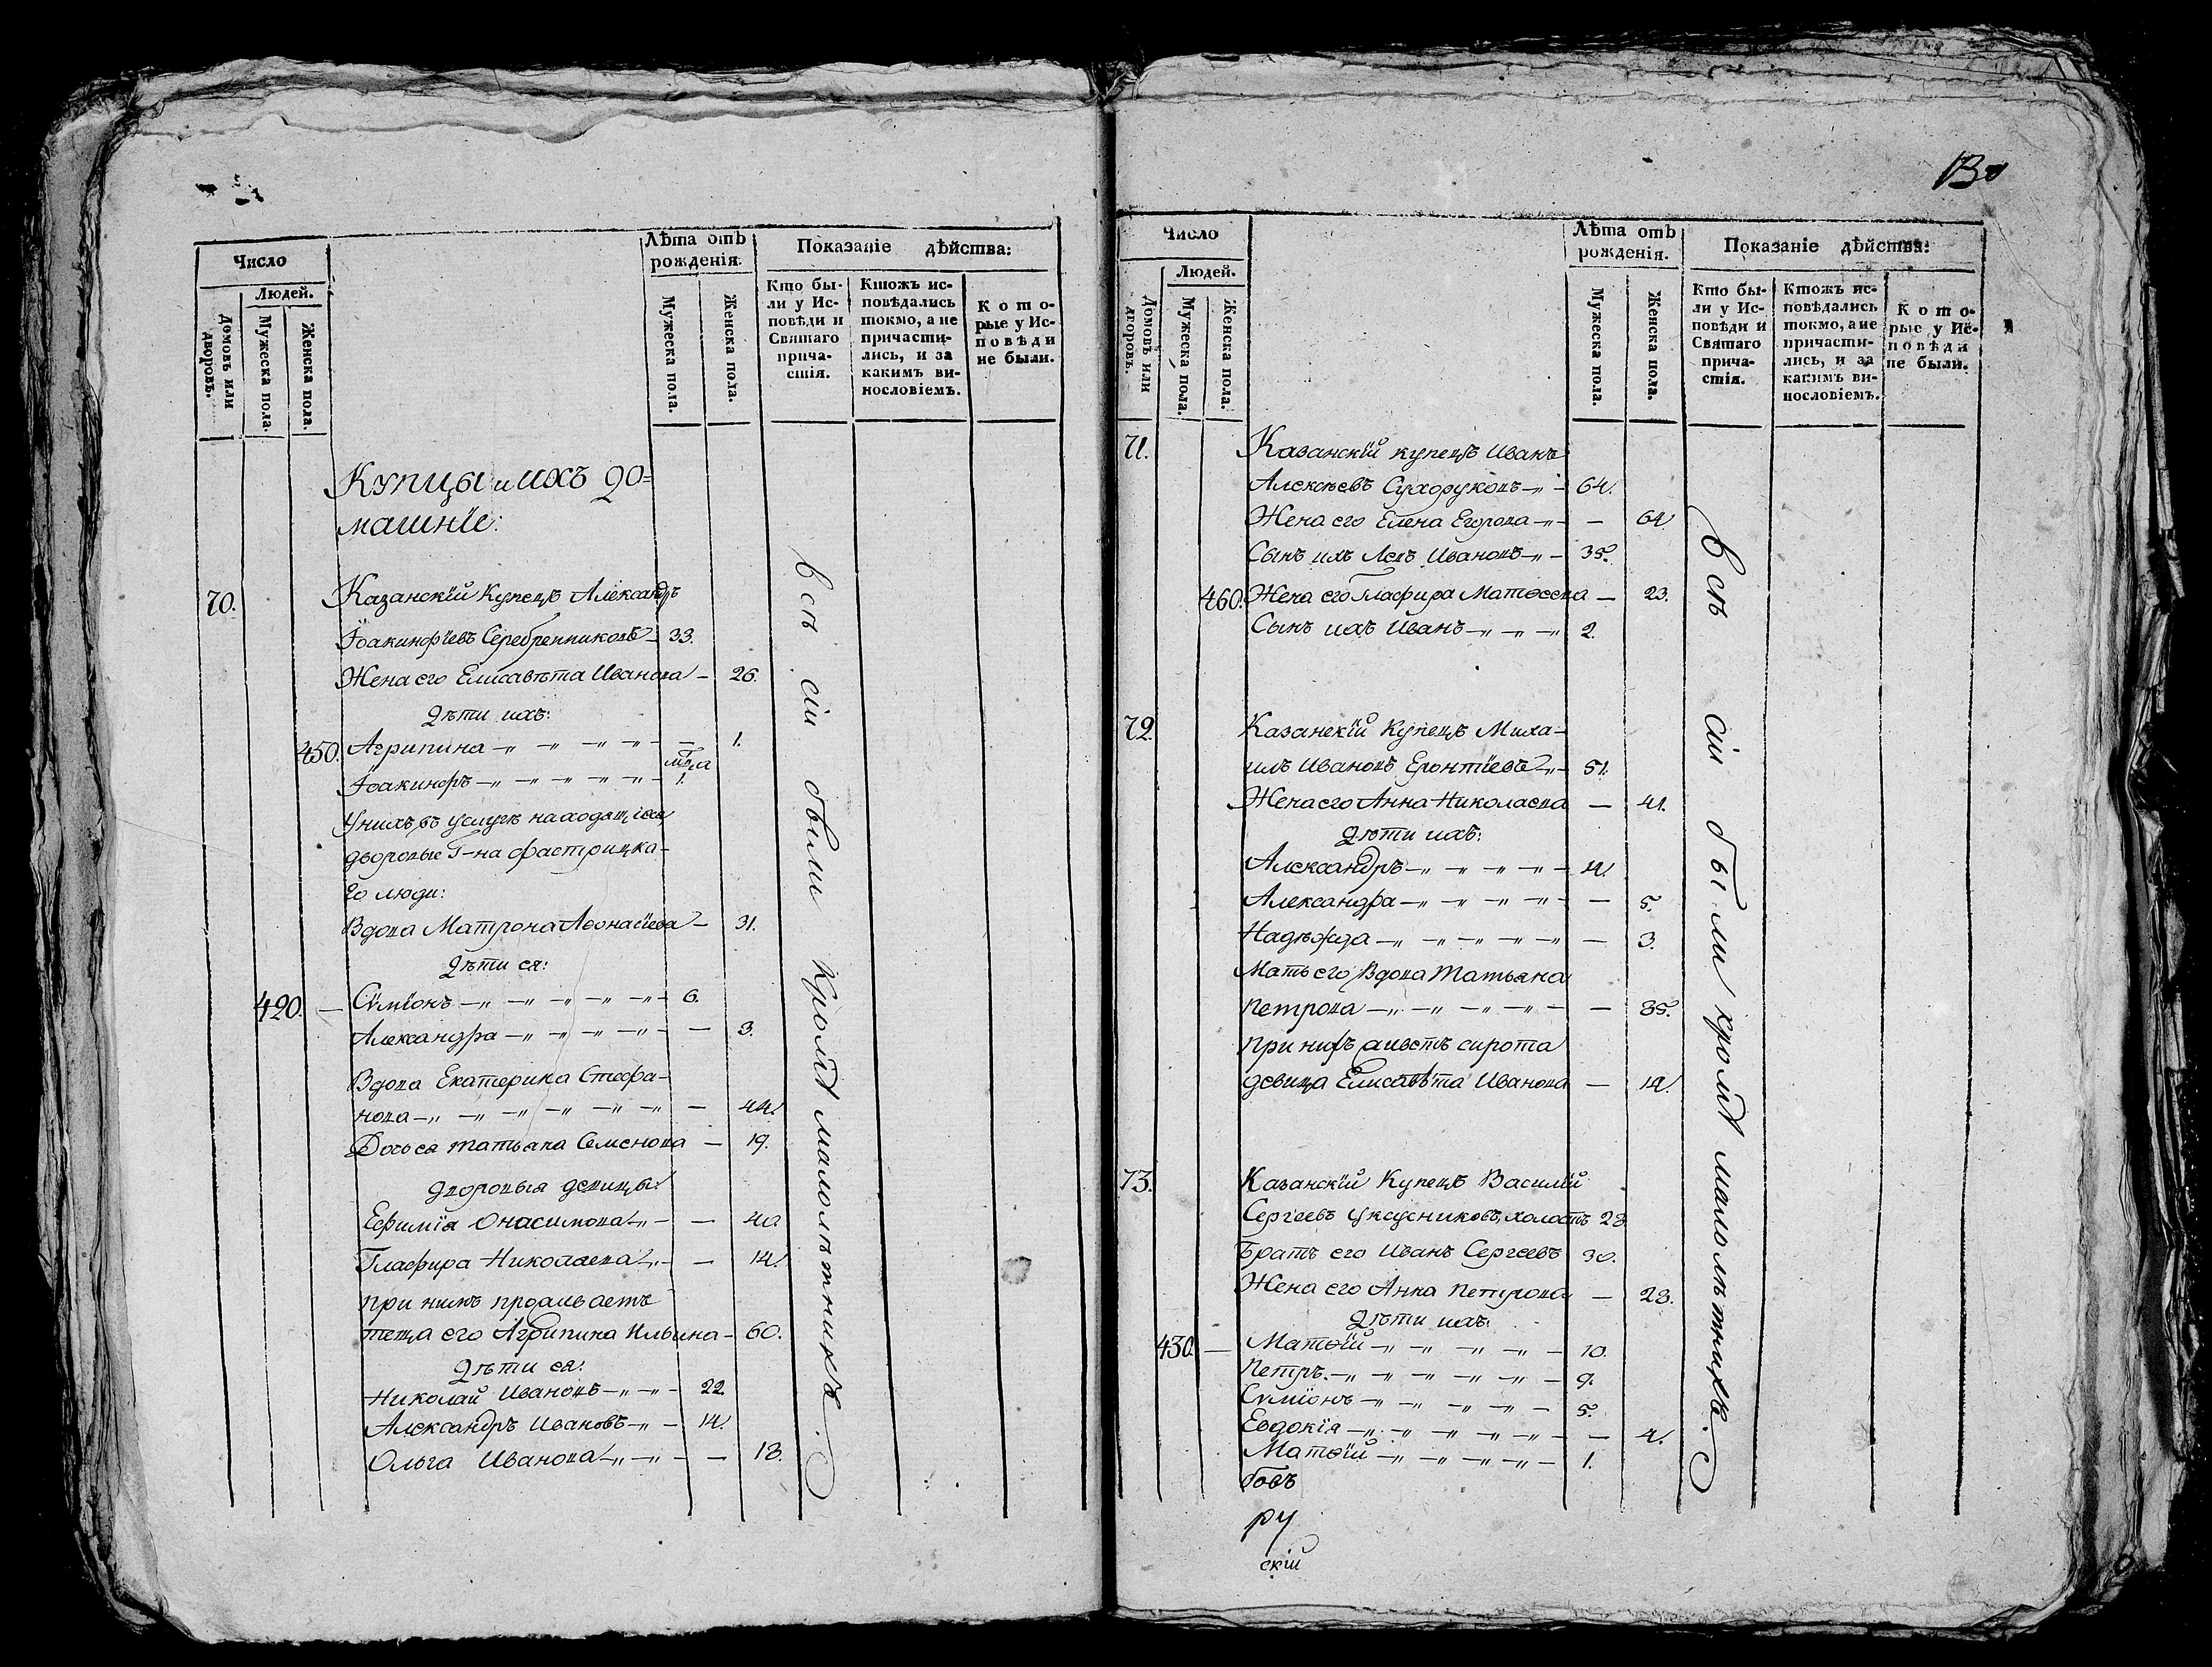 Число
Людей.
Домовъ или дворовъ.
Мужеска пола.
Женска пола.
Лѣта отъ рожденія.
Мужеска пола.
Женска пола.
Показаніе дѣйства:
Кто бы-
ли у Ис-
повѣди и
Святаго
прича-
стія.
Ктожъ ис-
повѣдались
токмо, а не
причасти-
лись, и за
какимъ ви-
нословіемъ.
К о т о-
рые у Ис-
п о в ѣ д и
не были.
Купцы и ихъ до=
машніе:
70. Казанскій Купецъ Александръ
Іоакинфіевъ Серебренниковъ — 33.
Жена его Елисавѣта Иванова — 26.
Дѣти ихъ:
450. Агрипина — 1.
Іоакинфъ — 1.
У нихъ въ услугѣ находящіеся
дворовые Г-на Фастрицка-
го люди:
Вдова Матрона Аѳонасіева — 31.
Дѣти ея:
420. — Сѵміонъ — 6.
Александра — 3.
Вдова Екатерина Стефа-
нова — 44.
Дочь ея Татьяна Семенова — 19.
Дворовыя девицы:
Ефимія Онасимова — 40
Глафира Николаева — 14.
При нихъ проживаетъ
теща его Агрипина Ильина — 60.
Дѣти ея:
Николай Ивановъ — 22.
Александръ Ивановъ — 14.
Ольга Иванова — 18.
всѣ сіи были кромѣ малолѣтнихъ.
Число
Людей.
Домовъ или дворовъ.
Мужеска пола.
Женска пола.
Лѣта отъ рожденія.
Мужеска пола.
Женска пола.
Показаніе дѣйства:
Кто бы-
ли у Ис-
повѣди и
Святаго
прича-
стія.
Ктожъ ис-
повѣдались
токмо, а не
причасти-
лись, и за
какимъ ви-
нословіемъ.
К о т о-
рые у Ис-
п о в ѣ д и
не были.
71. Казанскій купецъ Иванъ
Алексѣевъ Сухоруковъ — 64.
Жена его Елена Егорова — 64
Сынъ ихъ Левъ Ивановъ — 35.
460. Жена его Глафира Матвеева — 23.
Сынъ ихъ Иванъ — 2.
72. Казанскій Купецъ Миха-
илъ Ивановъ Еронтіевъ — 51.
Жена его Анна Николаева — 41.
Дѣти ихъ:
Александръ — 14.
Александра — 5.
Надѣжда — 3.
Мать его Вдова Татьяна
Петрова — 85.
При нихъ живетъ сирота
девица Елисавѣта Иванова — 14.
73. Казанскій Купецъ Василій
Сергѣевъ Уксусниковъ, холостъ 28
Братъ его Иванъ Сергеевъ 30.
Жена его Анна Петрова — 28.
Дѣти ихъ:
430. — Матѳій — 10.
Петръ — 9.
Сѵміонъ — 5.
Евдокія — 4.
Матѳій — 1.
бовъ
ру
скій
всѣ сіи были кромѣ малолѣтнихъ.